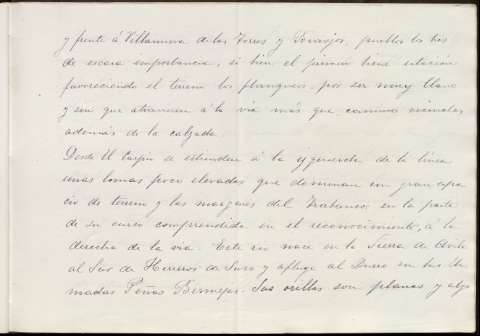 y frente á Villanueva de las Torres y Tovarejos, pueblos los dos
de escasa importancia, si bien el primero tiene estacion
favoreciendo el terreno los flanqueos, por ser muy llano
y son que atraviesen á la via más que caminos vecinales
además de la calzada.
Desde El Carpio se estienden á la izquierda de la linea
unas lomas poco elevadas que dominan un gran espa
cio de terreno y las margenes del Trabancos en la parte
de su curso comprendida en el reconocimiento, á la
derecha de la via. Este rio nace en la Sierra de Avila
al Sur de Herreros de Suso y afluye al Duero en las lla
madas Peñas Bermejas. Sus orillas son planas y algo